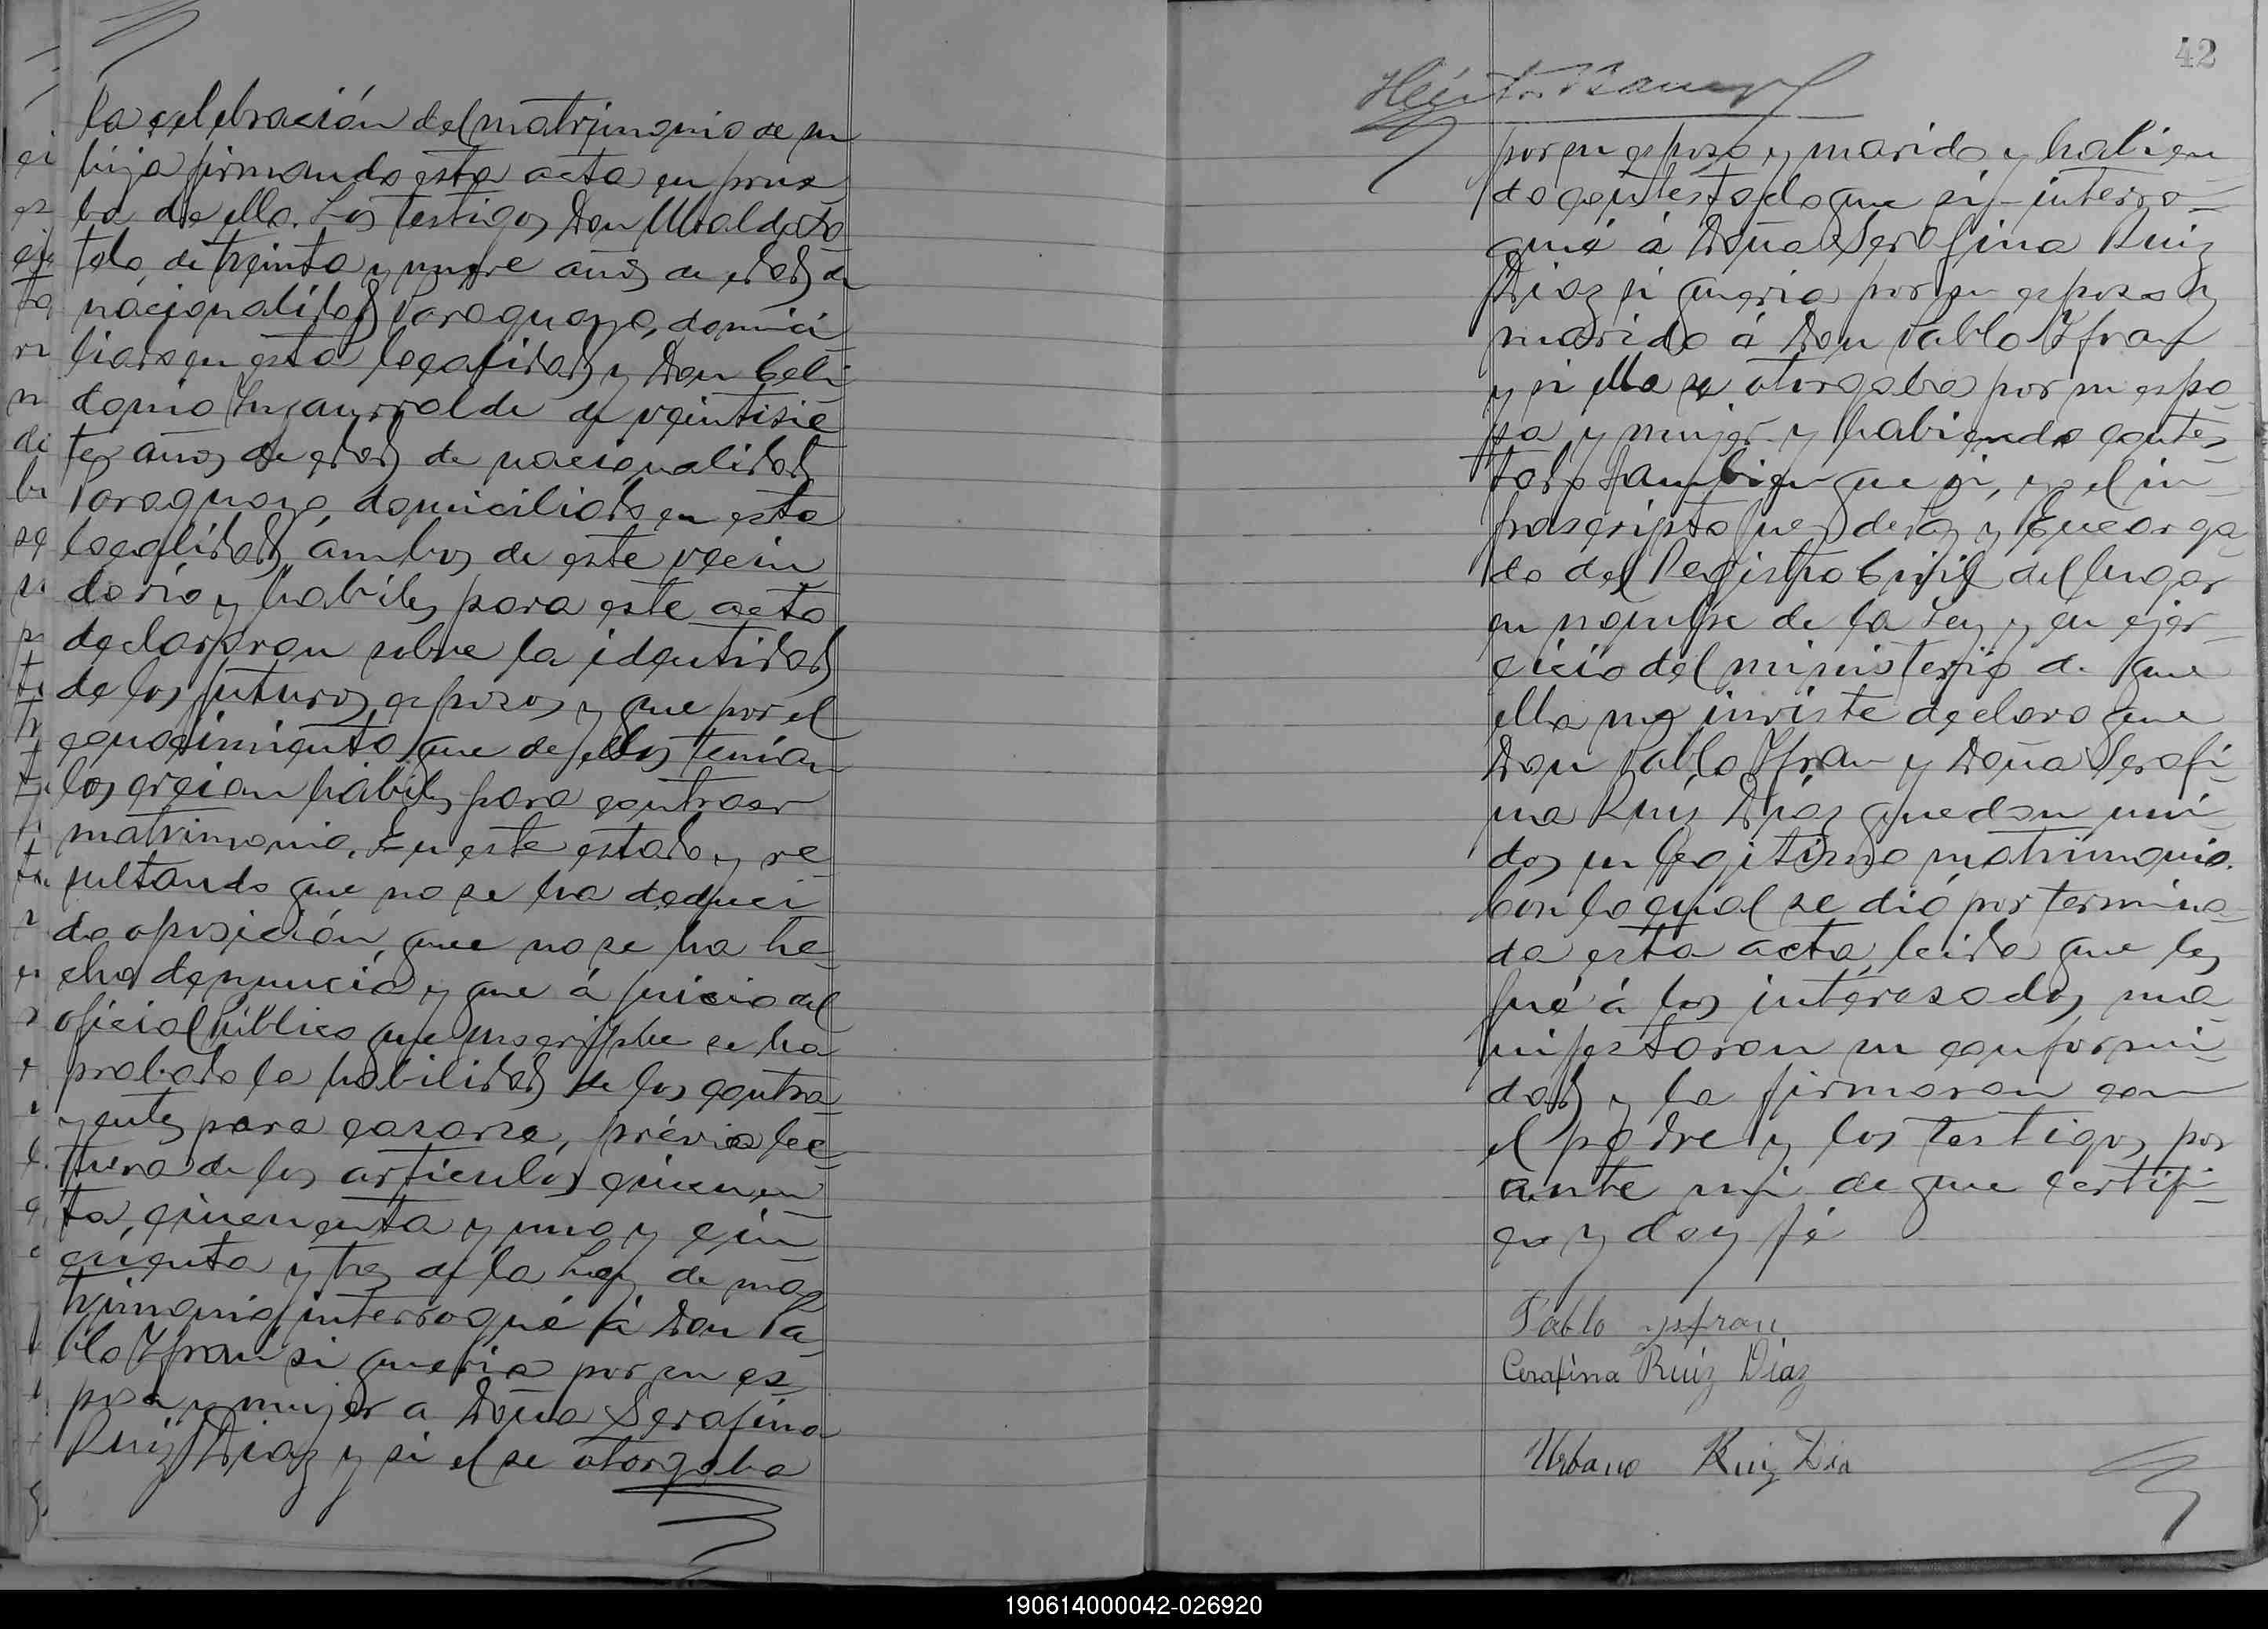 la celebración del matrimonio de su
hija firmando esta acta en prue
ba de ello. Los testigos Don Ubaldo So
telo, de treinta y nueve años de edad, de
nacionalidad Paraguaya, domici
liado en esta localidad y Don Celi
donio Insaurralde de veintisie
te años de edad de nacionalidad
Paraguaya, domiciliado en esta
localidad, ámbos de este vecin
dario y habiles para este acto
declararon sobre la identidad
de los futuros esposos y que por el
conocimiento que de ellos tenian
los creian habiles para contraer
matrimonio. En este estado y re
sultando que no se ha deduci
do oposición, que no se ha he-
cho denuncia y que á juicio del
oficial Público que suscribe se ha
probado la habilidad de los contra
yentes para casarse, prévia lec
tura de los artículos cincuen
ta, cincuenta y uno y cin
cuenta y tres de la Ley de ma
trimonio interrogué á Don Pa
blo Yfran si queria por su es
posa y mujer a Doña Serafina
Ruiz Diaz y si el se otorgaba
42
Héctor
por su esposo y marido y habien
do contestado que si - interro-
gué á Doña Serafina Ruiz
Diaz si queria por su esposo y
marido á Don Pablo Yfran
y si ella se otorgaba por su espo
sa y mujer y habiendo contes
tado tambien que si, yo el in
frascripto Juez de Paz y Encarga
do del Registro Civil del lugar
en nombre de la Ley y en ejer
cicio del ministerio de que
ella me inviste declaro que
Don Pablo Yfran y Doña Serafi
na Ruiz Diaz quedan uni
dos en legitimo matrimonio.
Con lo cual se dió por termina
da esta acta, leida que les
fué á los interesados, ma
nifestaron su conformi
dad y la firmaron con
el padre y los testigos por
ante mi de que certifi
co y doy fé
Pablo ysfran
Cerafina Ruiz Diaz
Urbano Ruiz Dia
190614000042-026920